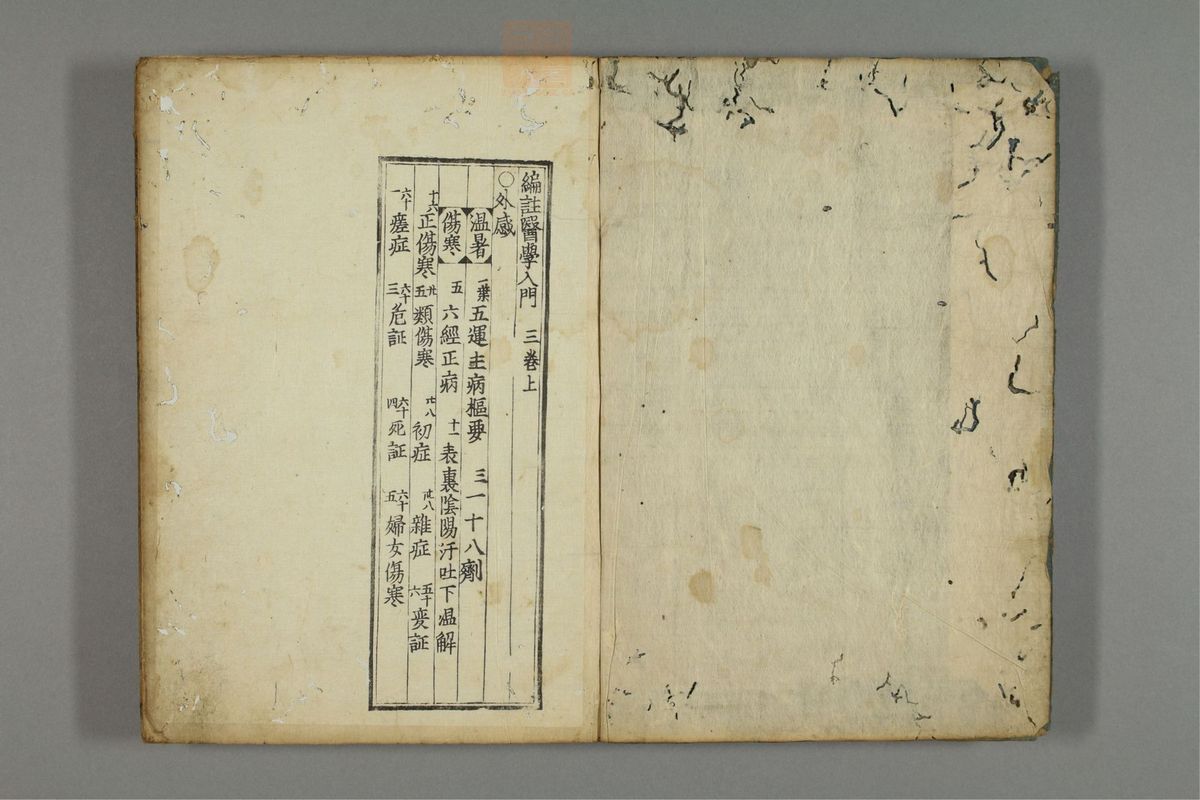 編註醫學入門 三巻上
〇外感
温暑 一葉 五運主病樞要 三 一十八劑
傷寒 五 六經正病 十一 表裏陰陽汗吐下温解
十六 正傷寒 廿五 類傷寒 廿八 初症 卅八 雜症 五十六 変証
六十一 瘥症 六十三 危証 六十四 死証 六十五 婦女傷寒